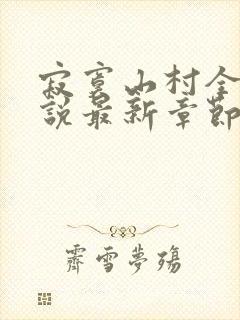 寂寞山村全
說最新章節
霽雪夢殤